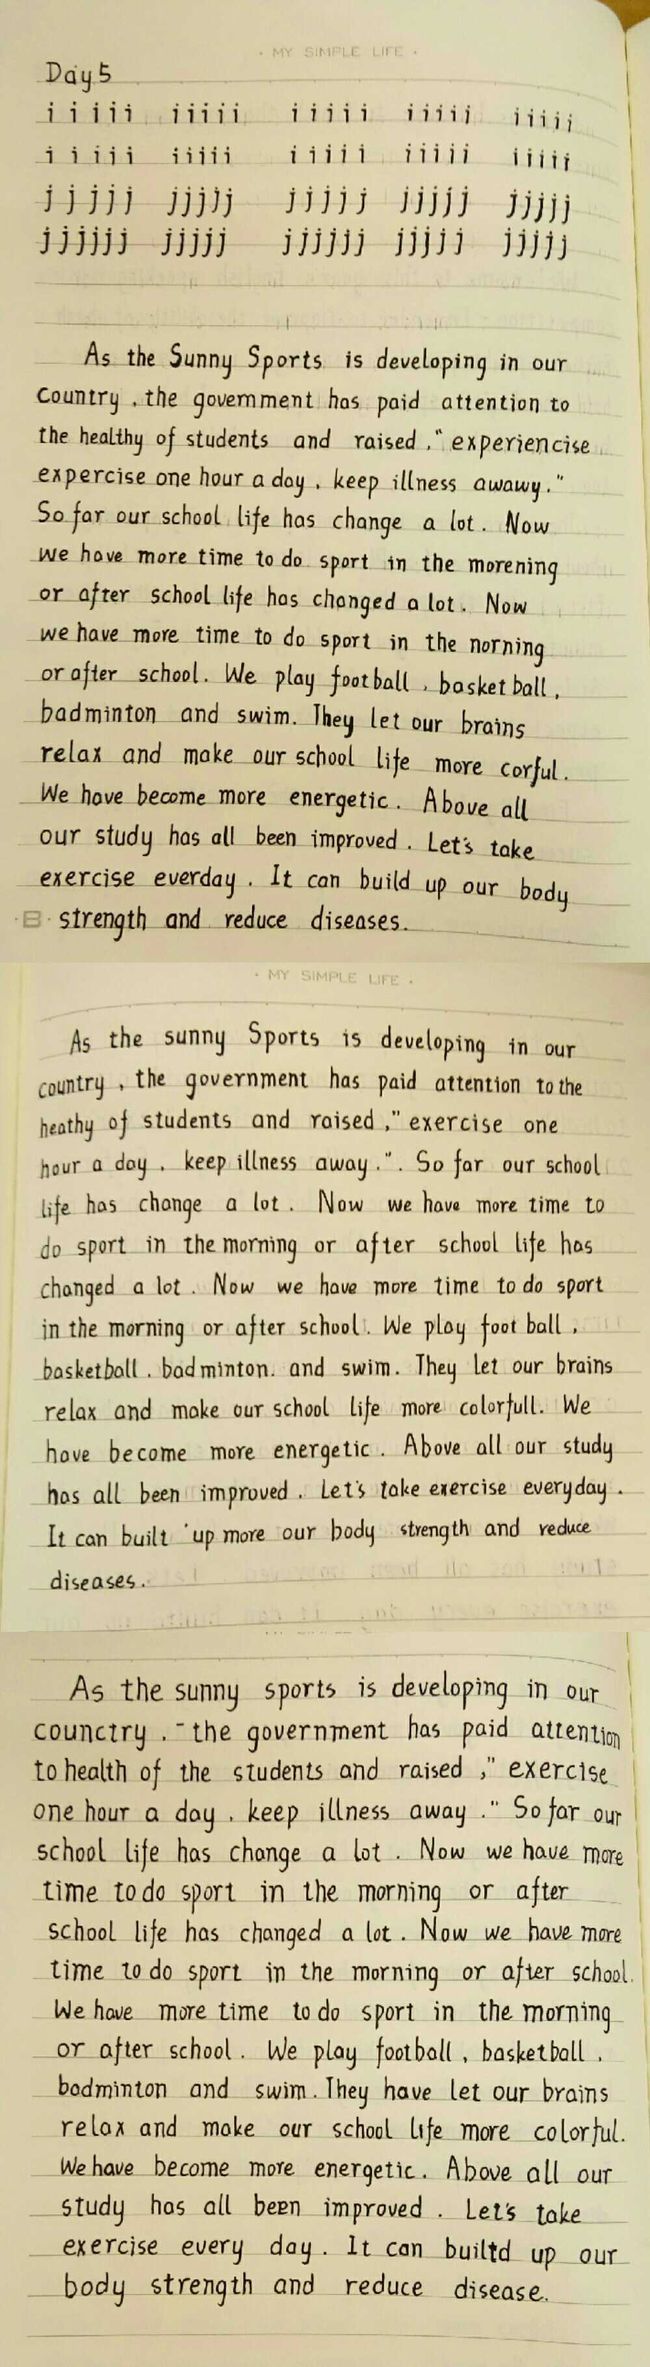 · MY SIMPLE LIFE ·
Day 5
i i i i i i i i i i i i i i i i i i i i i i i i i
i i i i i i i i i i i i i i i i i i i i i i i i i
j j j j j j j j j j j j j j j j j j j j j j j j j
j j j j j j j j j j j j j j j j j j j j j j j j j j j
As the Sunny Sports is developing in our
country , the government has paid attention to
the healthy of students and raised ," experiencise
expercise one hour a day , keep illness awawy."
So far our school life has change a lot . Now
we have more time to do sport in the morening
or after school life has changed a lot . Now
we have more time to do sport in the norning
or after school . We play football , basket ball ,
badminton and swim. They let our brains
relax and make our school life more corful .
We have become more energetic . Above all
our study has all been improved . Let's take
exercise everday . It can build up our body
·B· strength and reduce diseases.
· MY SIMPLE LIFE ·
As the sunny Sports is developing in our
country , the government has paid attention to the
heathy of students and raised ," exercise one
hour a day , keep illness away .". So far our school
life has change a lot . Now we have more time to
do sport in the morning or after school life has
changed a lot . Now we have more time to do sport
in the morning or after school . We play foot ball ,
basketball , badminton. and swim . They let our brains
relax and make our school life more colorfull. We
have become more energetic . Above all our study
has all been improved . Let's take exercise everyday .
It can built up more our body strength and reduce
diseases .
As the sunny sports is developing in our
counctry . - the government has paid attention
to health of the students and raised ," exercise
one hour a day , keep illness away ." So far our
school life has change a lot . Now we have more
time to do sport in the morning or after
school life has changed a lot . Now we have more
time to do sport in the morning or after school.
We have more time to do sport in the morning
or after school . We play football , basketball ,
badminton and swim . They have let our brains
relax and make our school life more colorful.
We have become more energetic . Above all our
study has all been improved . Let's take
exercise every day . It can builtd up our
body strength and reduce disease.